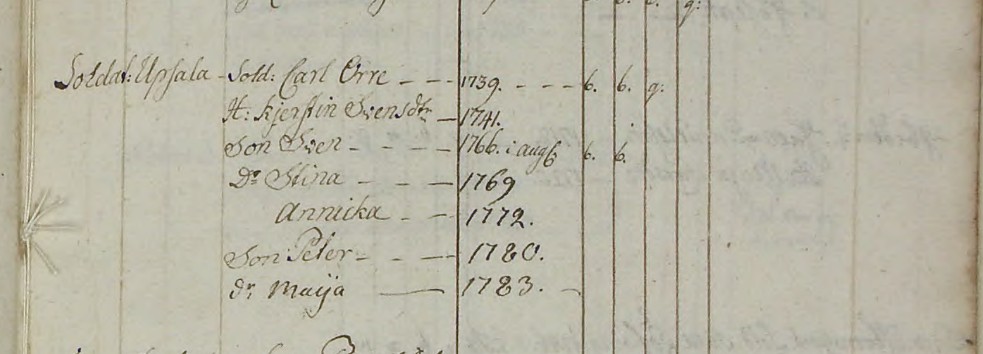 Soldat: Upsala - Sold: Carl Orre - - - 1739. - - - 6. 6. g:
H: Kjerstin Svensdtr - 1741.
Son Sven - - - - 1766. i aug 6. 6.
Dr Stina - - - 1769
Annicka - - 1772.
Son Peter - - - 1780.
dr Maija - 1783. -